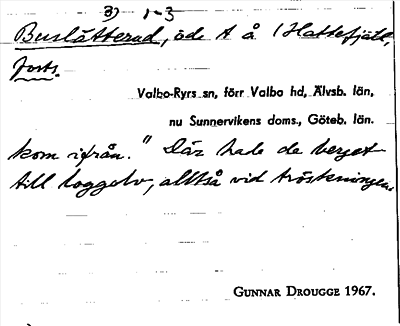 3) 1-3
Buslätterud, öde t å (Hattefjäll,
forts.
Valbo-Ryrs sn, förr Valbo hd, Älvsb. län,
nu Sunnervikens doms., Göteb. län.
kom ifrån." Där hade de berget
till loggolv, alltså vid tröskningen.
GUNNAR DROUGGE 1967.